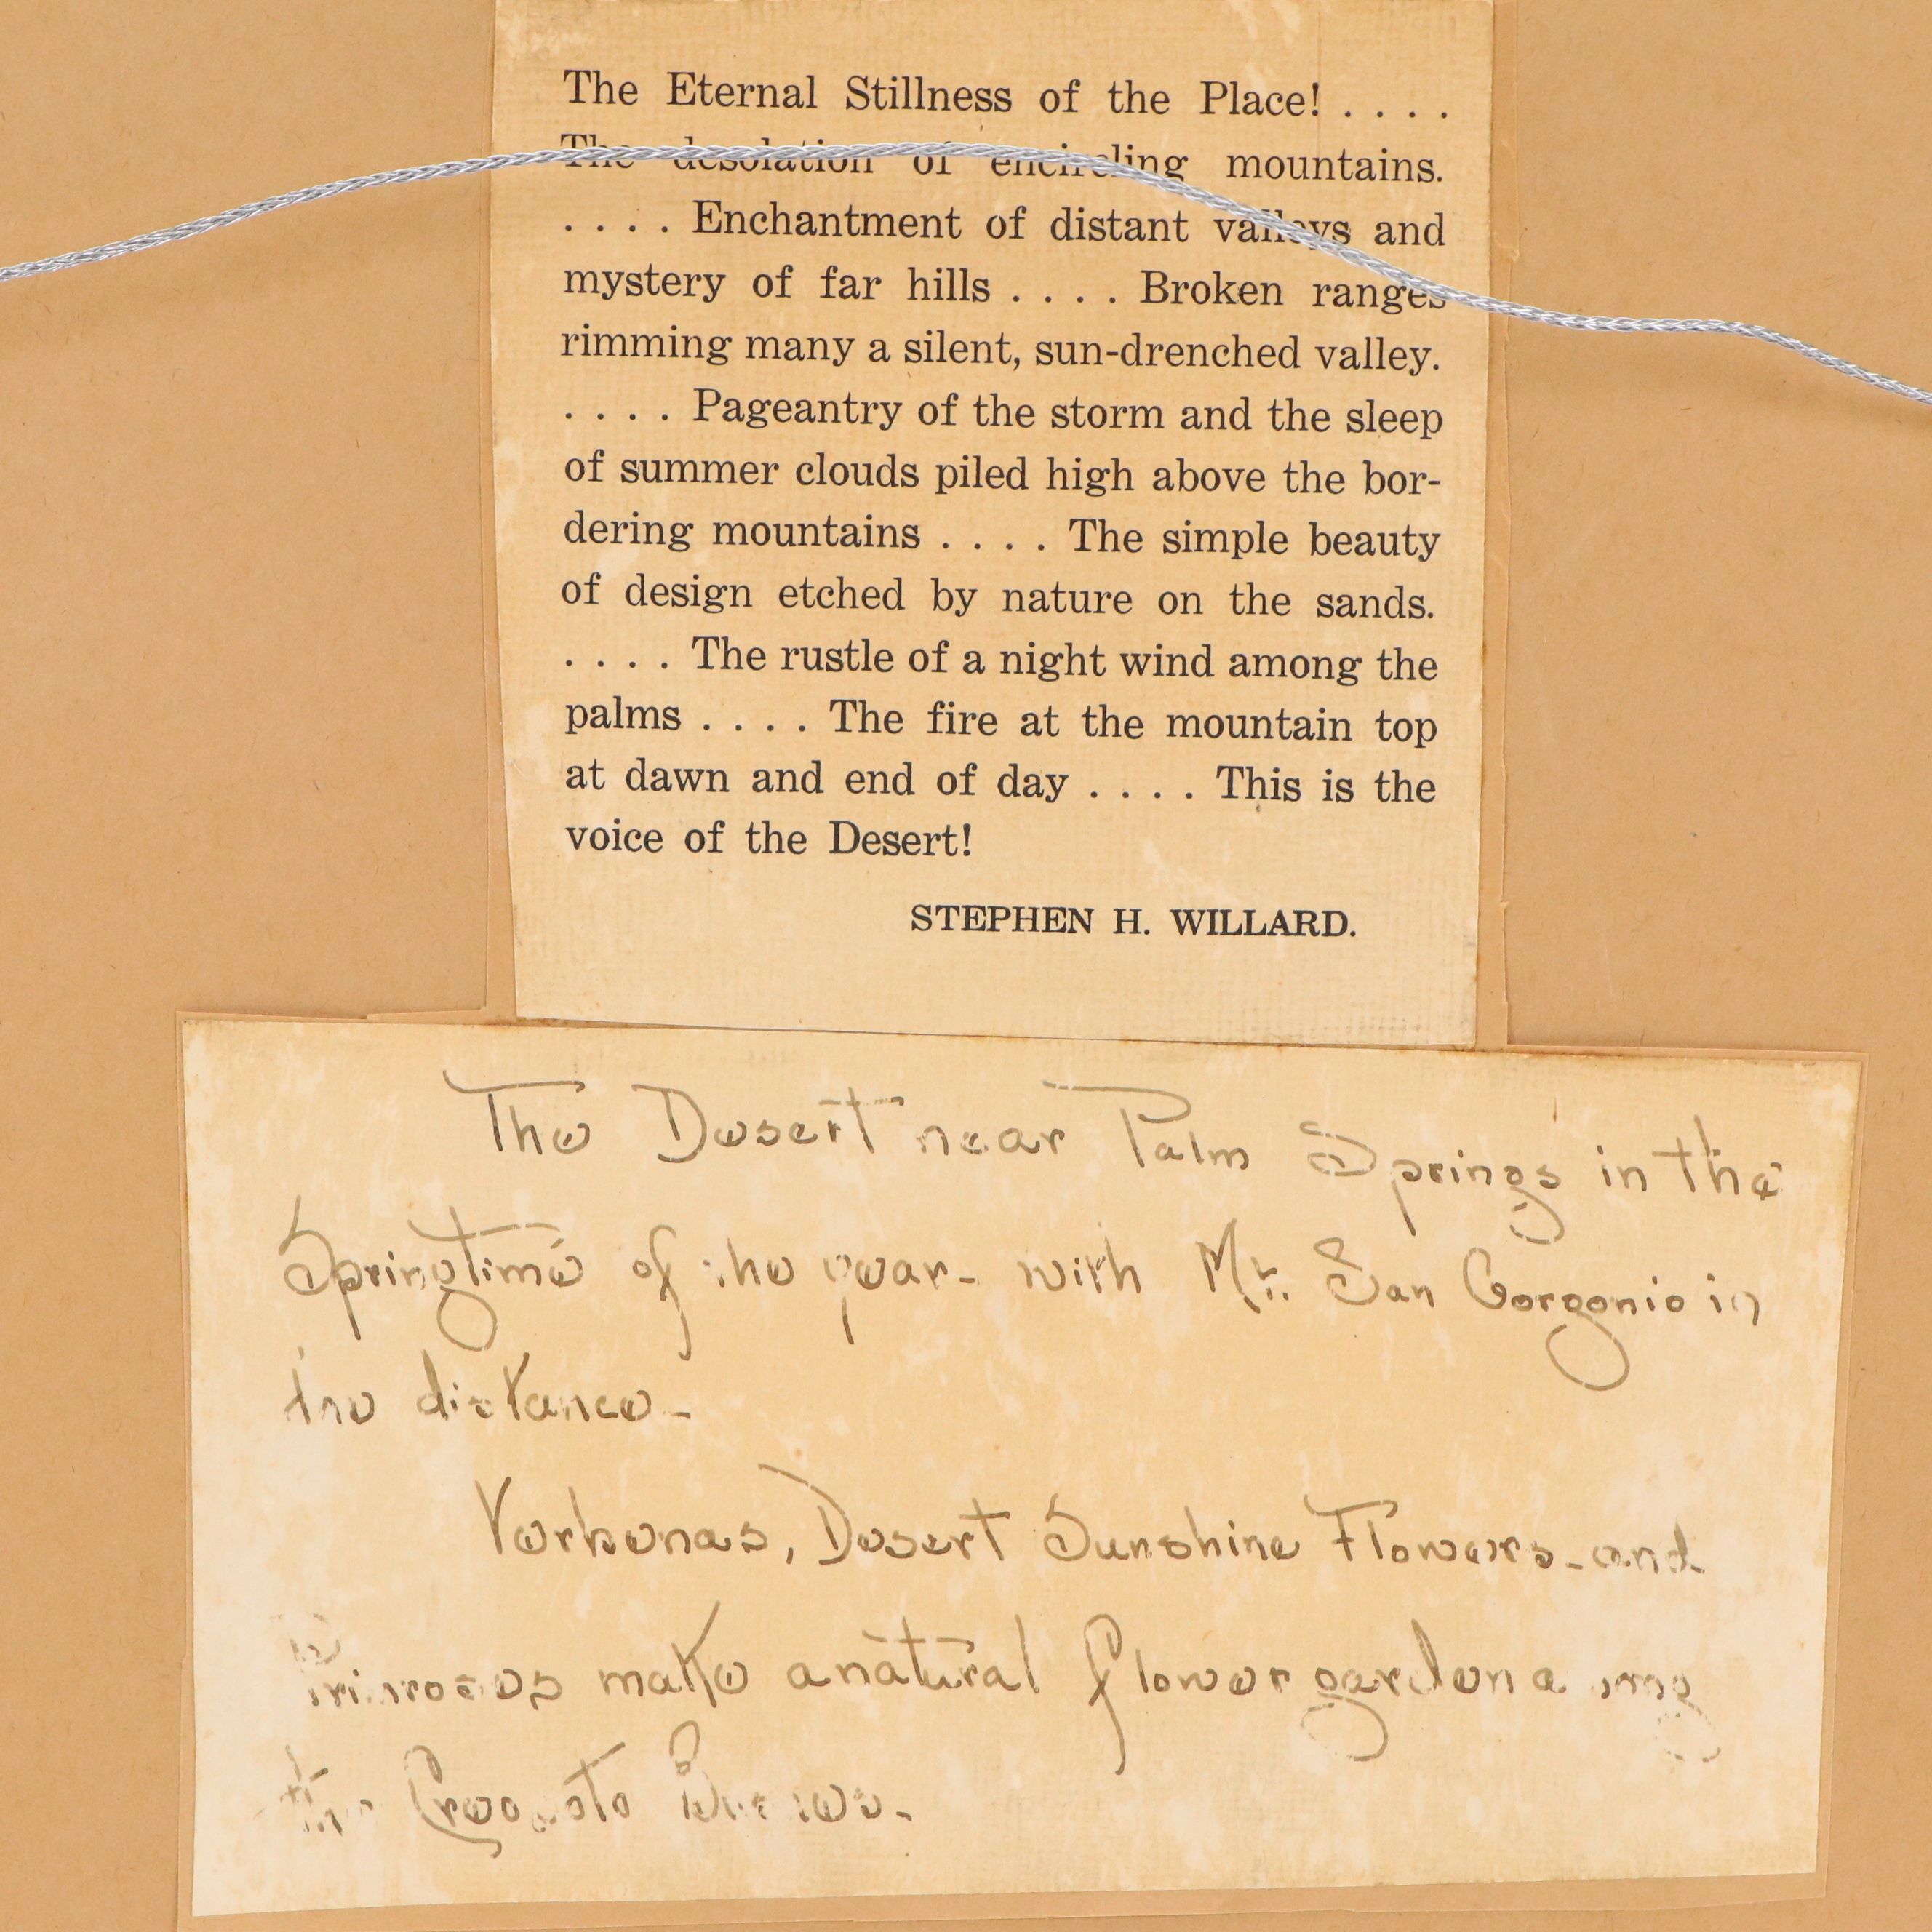 The Eternal Stillness of the Place! . . . .
The desolation of encircling mountains.
. . . . Enchantment of distant valleys and
mystery of far hills . . . . Broken ranges
rimming many a silent, sun-drenched valley.
. . . . Pageantry of the storm and the sleep
of summer clouds piled high above the bor-
dering mountains . . . . The simple beauty
of design etched by nature on the sands.
. . . . The rustle of a night wind among the
palms . . . . The fire at the mountain top
at dawn and end of day . . . . This is the
voice of the Desert!
STEPHEN H. WILLARD.
The Desert near Palm Springs in the
Springtime of the year - with Mt. San Gorgonio in
the distance -
Verbenas, Desert Sunshine Flowers - and
Primroses make a natural flower garden among
the Creosote